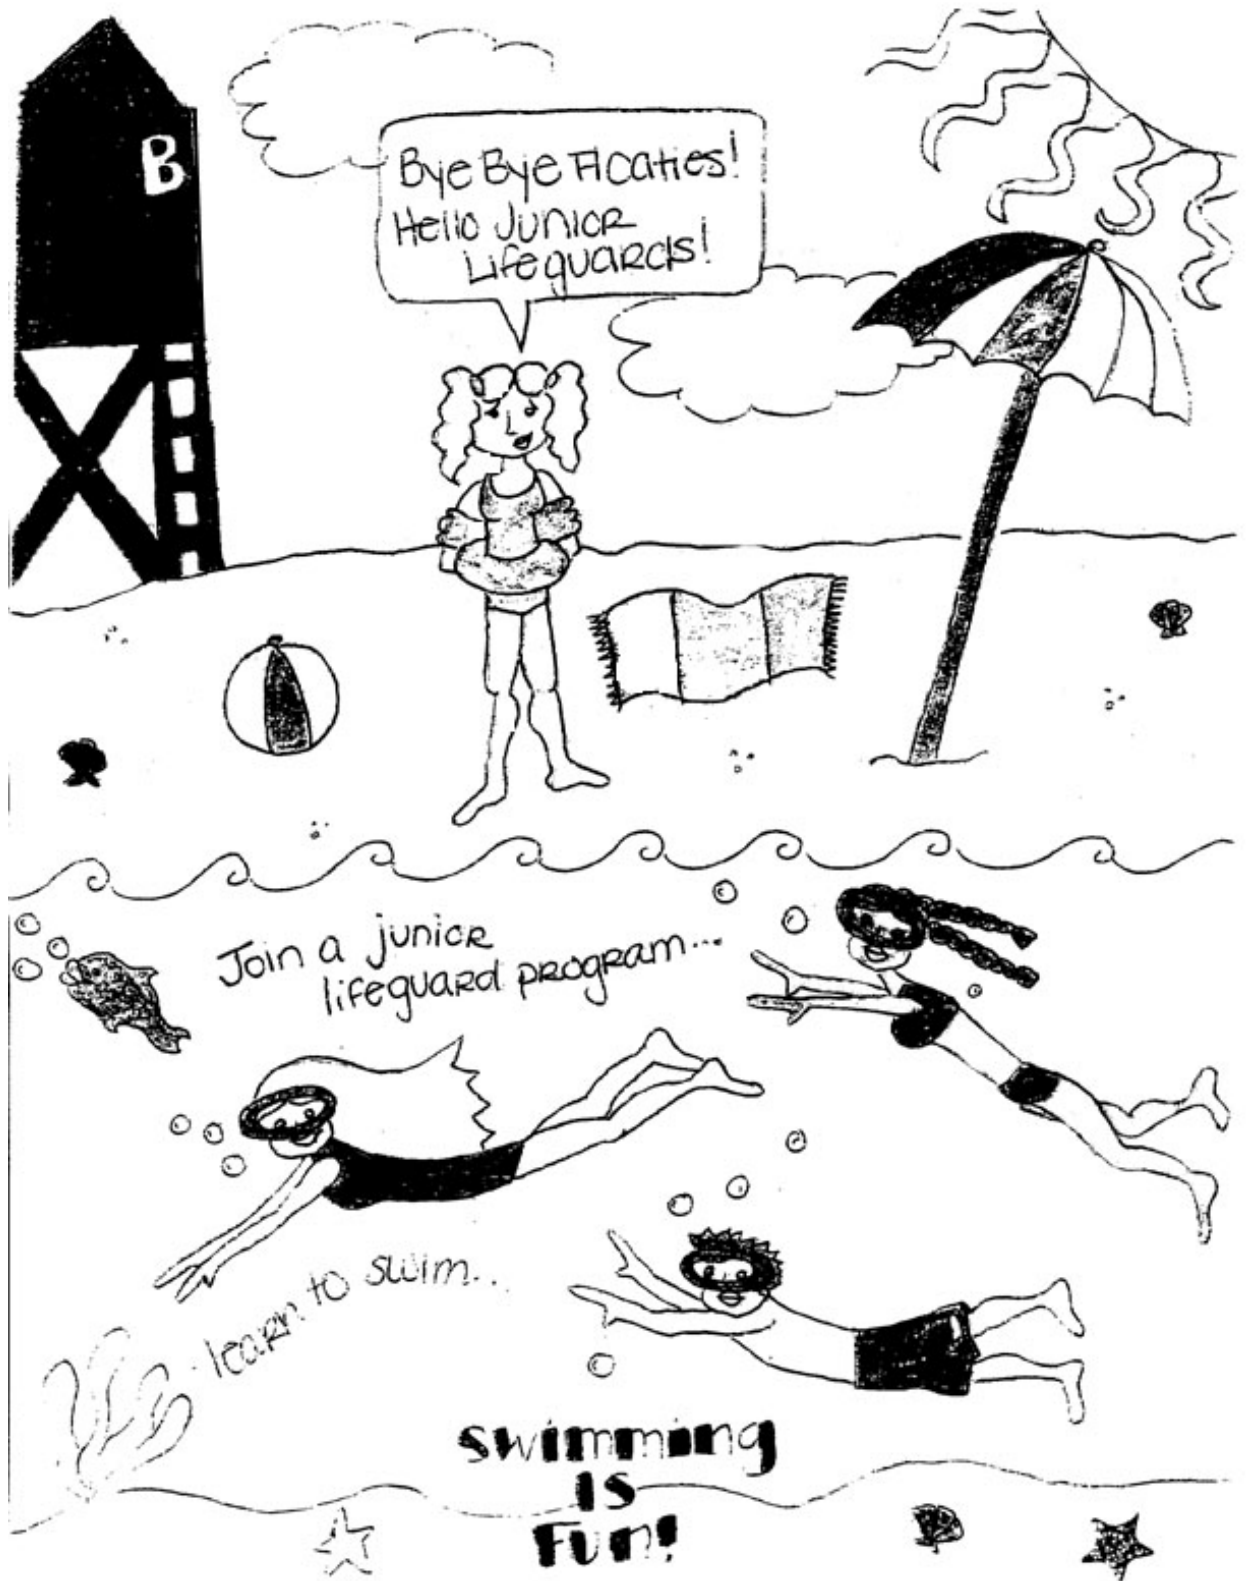 B
Bye Bye Floaties!
Hello Junior
Lifeguards!
Join a junior
lifeguard program...
learn to swim...
swimming
is
Fun!